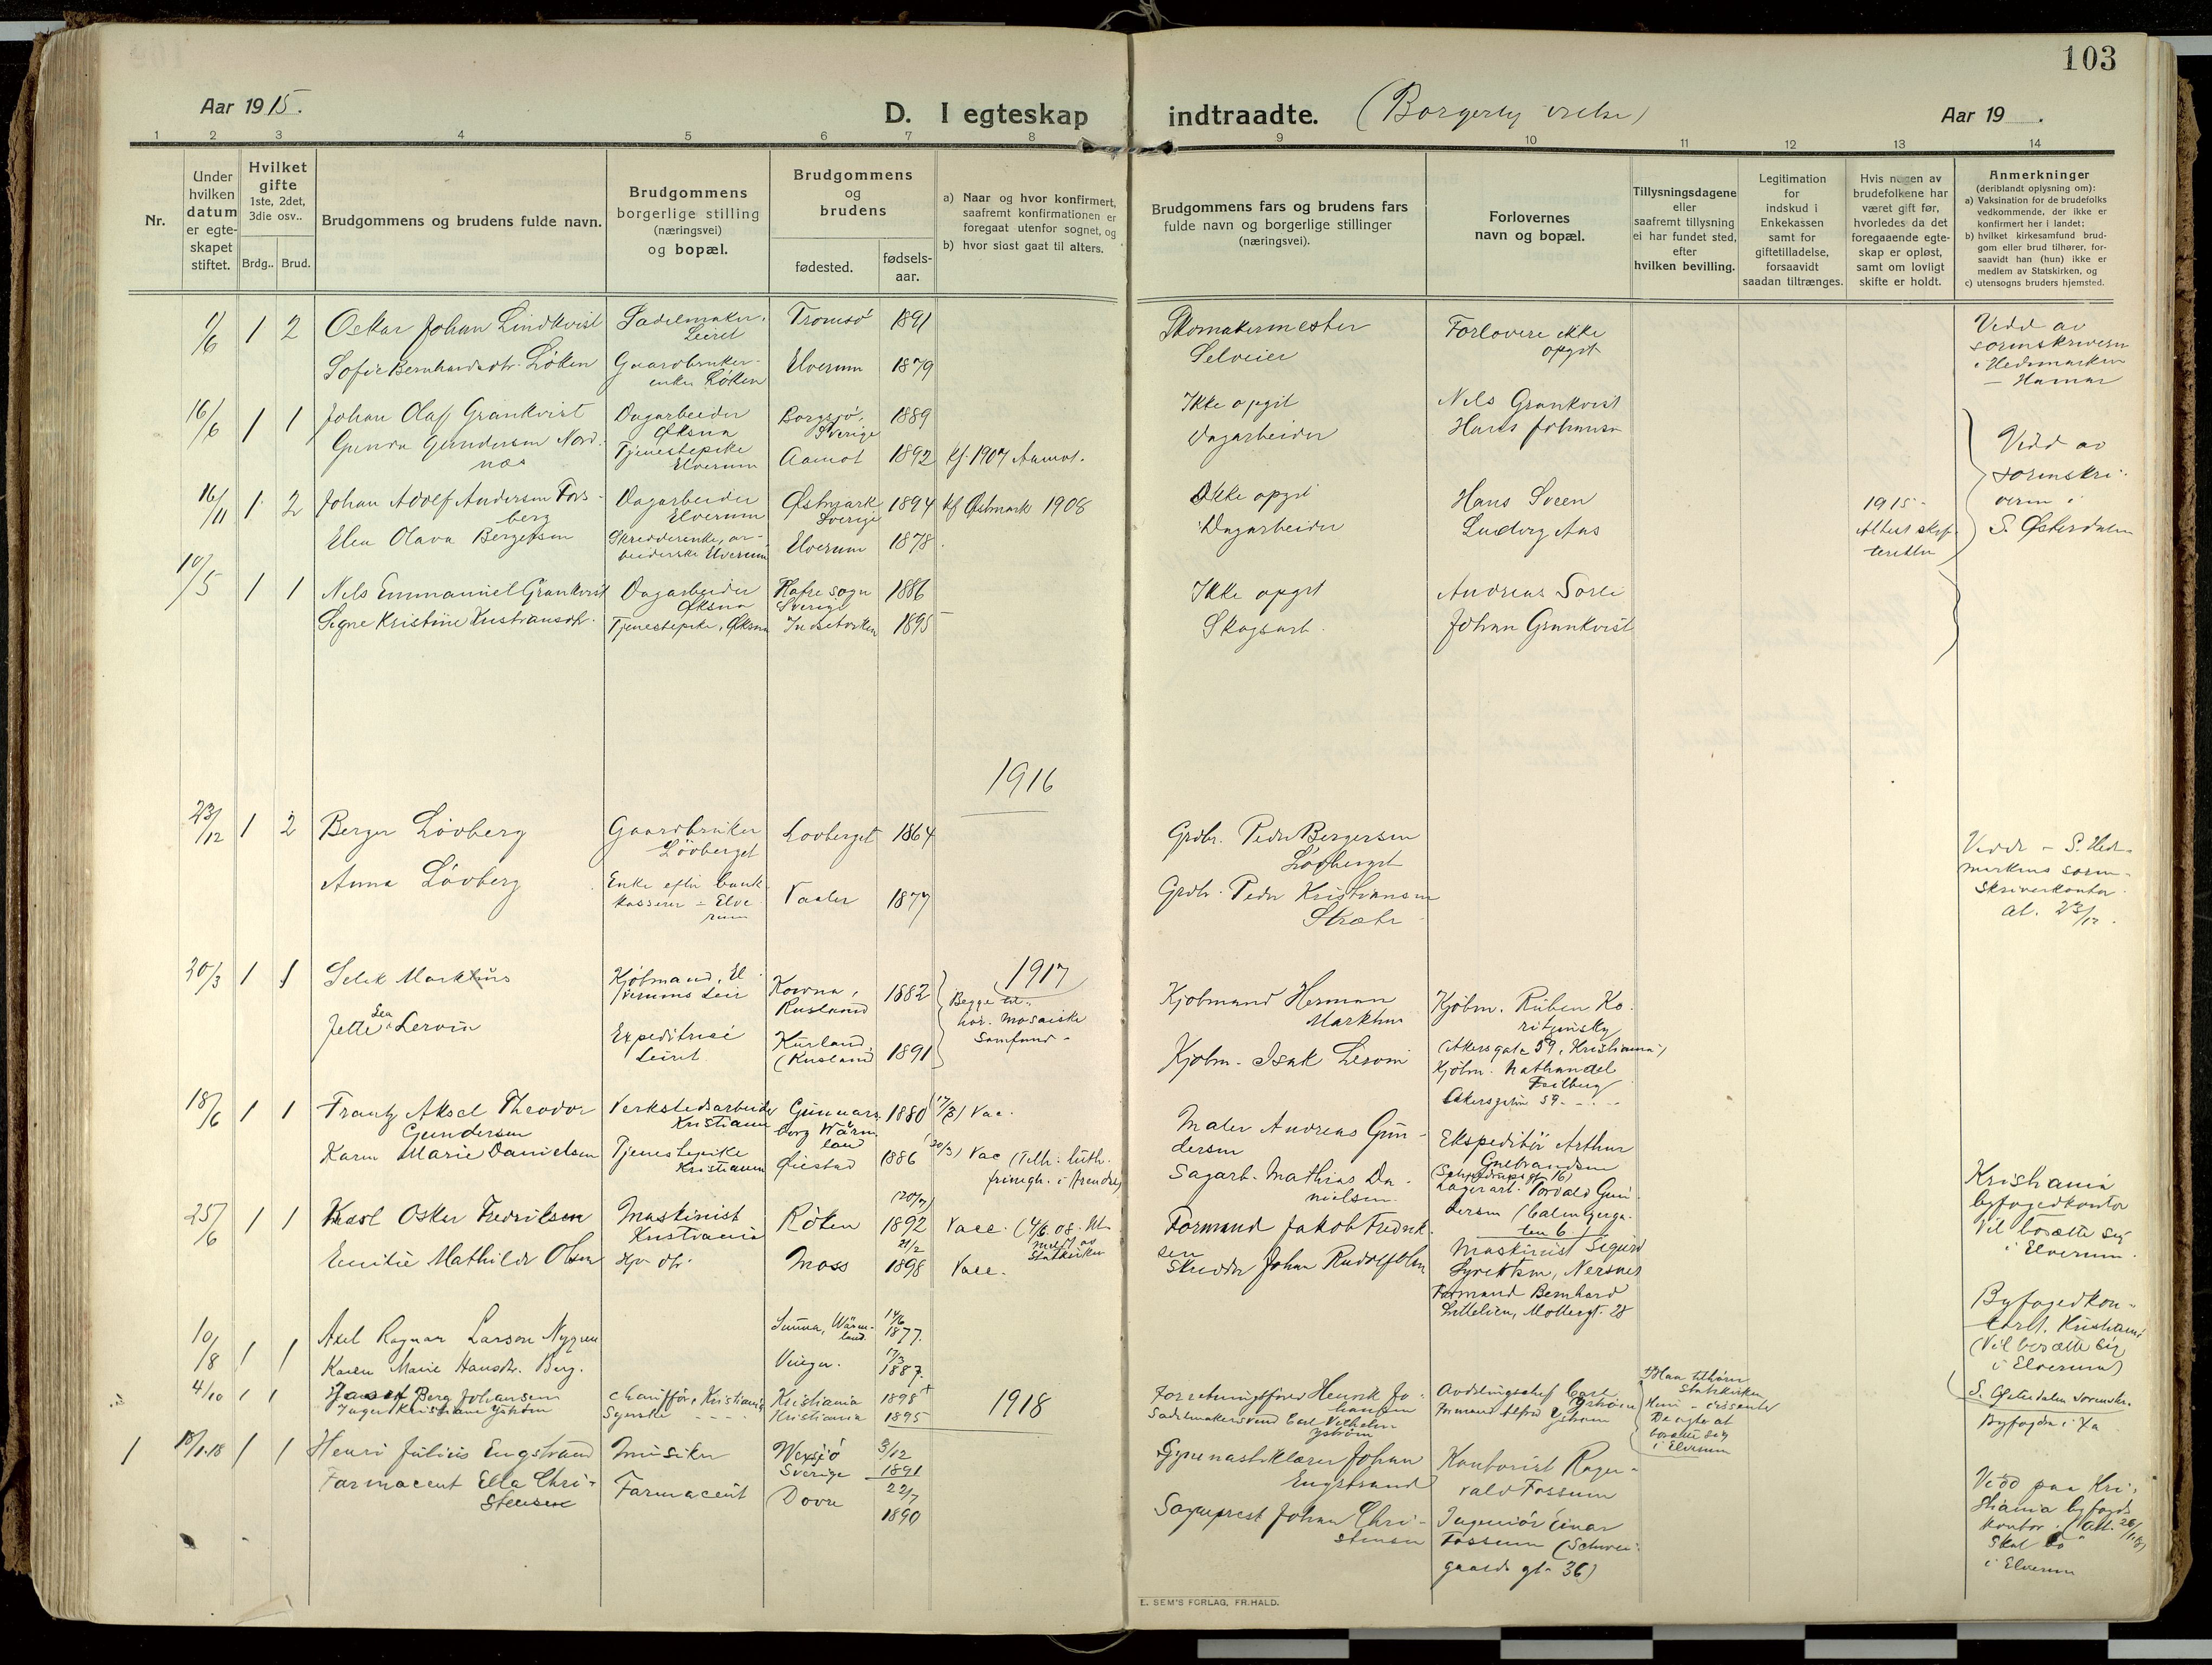 103
Aar 1915.
D. I egteskap indtraadte. (Borgerlig vielse)
Aar 19 .
1 2 3 4 5 6 7 8 9 10 11 12 13 14
Nr.
Under hvilken datum er egteskapet stiftet.
Hvilket gifte 1ste, 2det, 3die osv..
Brdg.. Brud.
Brudgommens og brudens fulde navn.
Brudgommens borgerlige stilling (næringsvei) og bopæl.
Brudgommens og brudens
fødested. fødsels-aar.
a) Naar og hvor konfirmert, saafremt konfirmationen er foregaat utenfor sognet, og
b) hvor sidst gaat til alters.
Brudgommens fars og brudens fars fulde navn og borgerlige stillinger (næringsvei).
Forlovernes navn og bopæl.
Tillysningsdagene eller saafremt tillysning ei har fundet sted, efter hvilken bevilling.
Legitimation for indskud i Enkekassen samt for giftetilladelse, forsaavidt saadan tiltrænges.
Hvis nogen av brudefolkene har været gift før, hvorledes da det foregaaende egteskap er opløst, samt om lovligt skifte er holdt.
Anmerkninger
(deriblandt oplysning om):
a) Vaksination for de brudefolks vedkommende, der ikke er konfirmert her i landet;
b) hvilket kirkesamfund brudgom eller brud tilhører, forsaavidt han (hun) ikke er medlem av Statskirken, og
c) utensogns bruders hjemsted.
1/6 1 2 Oskar Johan Lindkvist Sadelmaker, Leiret Tromsø 1891 Skomakermester Forlovere ikke opgit Vidd av sorenskriveren i Hedemarken – Hamar
Sofie Bernhardsdtr. Løken Gaardbruker- enke Løken Elverum 1879 Selveier
16/6 1 1 Johan Olaf Grankvist Dagarbeider Øksna Borgsjö, Sverige 1889 Ikke opgit Nils Grankvist
Gunda Gundersen Nordnæs Tjenestepike Elverum Aamot 1892 kf. 1907 Aamot. Dagarbeider Hans Johansen
Vidd av sorenskriveren i S. Østerdalen
16/11 1 2 Johan Adolf Andersen Forsberg Dagarbeider Elverum Østmark Sverige 1894 kf Østmark 1908 Ikke opgit Hans Sveen 1915 – Attest skifteretten
Elea Olava Bergersen Skredderenke, arbeiderske Elverum Elverum 1878 Dagarbeider Ludvig Aas
10/5 1 1 Nils Emmanuel Grankvist Dagarbeider Øksna Hafre sogn Sverige 1886 Ikke opgit Andreas Sorli
Signe Kristine Kristiansdtr. Tjenestepike, Øksna Indsetorken 1895 Skogsarb. Johan Grankvist
1916
23/12 1 2 Berger Lövberg Gaardbruker Lövberget Lovberget 1864 Grdbr. Peder Bergersen Lövberget
Anna Lövberg Enke efter bankkasserer – Elverum Vaaler 1877 Grdbr. Peder Kristiansen Stræte
Viddr – S. Hedmarkens sorenskriverkontor at. 23/12.
1917
20/3 1 1 Selek Markhus Kjöbmand, Elverums Leir Kowna, Rusland 1882 Begge tilhör. Mosaiske Samfund – Kjobmand Herman Markhus Kjöbm. Ruben Koritzinsky (Akersgate 59, Kristiania)
Jette Lea Lervin Expeditrice Leiret Kurland (Rusland 1891 Kjobm. Isak Lervin Kjöbm. Nathandel Feilberg Akersgaten 59
18/6 1 1 Frantz Aksel Theodor Gundersen Verkstedsarbeider Kristiania Gunnarsborg Wärmland 1880 (17/3) Vac. Maler Andreas Gundersen Ekspeditör Arthur Gulbrandsen
Karen Marie Danielsen Tjenestepike Kristiania Øiestad 1886 20/3) Vac (Tilh. luth. frimgh. i Arendal) Sagarb. Mathias Danielsen Lagerarb. Torvald Gundersen
Kristiania byfogedkontor Vil bosætte sig i Elverum.
25/6 1 1 Karl Oskar Fredriksen Maskinist Kristiania Röken (20/7) 1892 Vacc. Formand Jakob Fredriksen Maskinist Sigurd
Emilie Mathilde Olsen Hpr dtr. Moss 21/2 1898 Vacc. Skredder Johan Rudolf Olsen Formand Bernhard Littelien, Mollergt. 28
10/8 1 1 Axel Ragnar Larson Nygren Sunna, Wärmland. 14/6 1877.
Karen Marie Hansdtr. Berg. Vinger. 17/3 1887.
Byfogedkontoret. Kristiania (Vil bosætte sig i Elverum)
1918
4/10 1 1 Berg Johansen Chauffør, Kristiania Kristiania 1898 Forretningsfører Henrik Johansen Avdelingschef Carl Yström
Inger Kristiane Yström Syerske Kristiania 1895 Sadelmakersvend Carl Vilhelm Yström Formand Alfred Yström
Han tilhører Statskirken Hun – dissenter De agter at bosætte sig i Elverum
S. Østerdalen Sorenskr.
Byfogden i Xa
1 18/1.18 1 1 Henri Julius Engstrand Musiker Wexsjö Sverige 3/12 1891 Gymnastiklærer Johan Engstrand Kontorist Ragnvald Fossum
Farmaceut Ella Christensen Farmaceut Dovre 22/7 1890 Sogneprest Johan Christensen Ingeniör Einar Fossum (Schweigaards gt. 36)
Vidd paa Kristiania byfogdkontor. (Att. 28/1.18) Skal bo i Elverum
E. SEM'S FORLAG, FR.HALD.